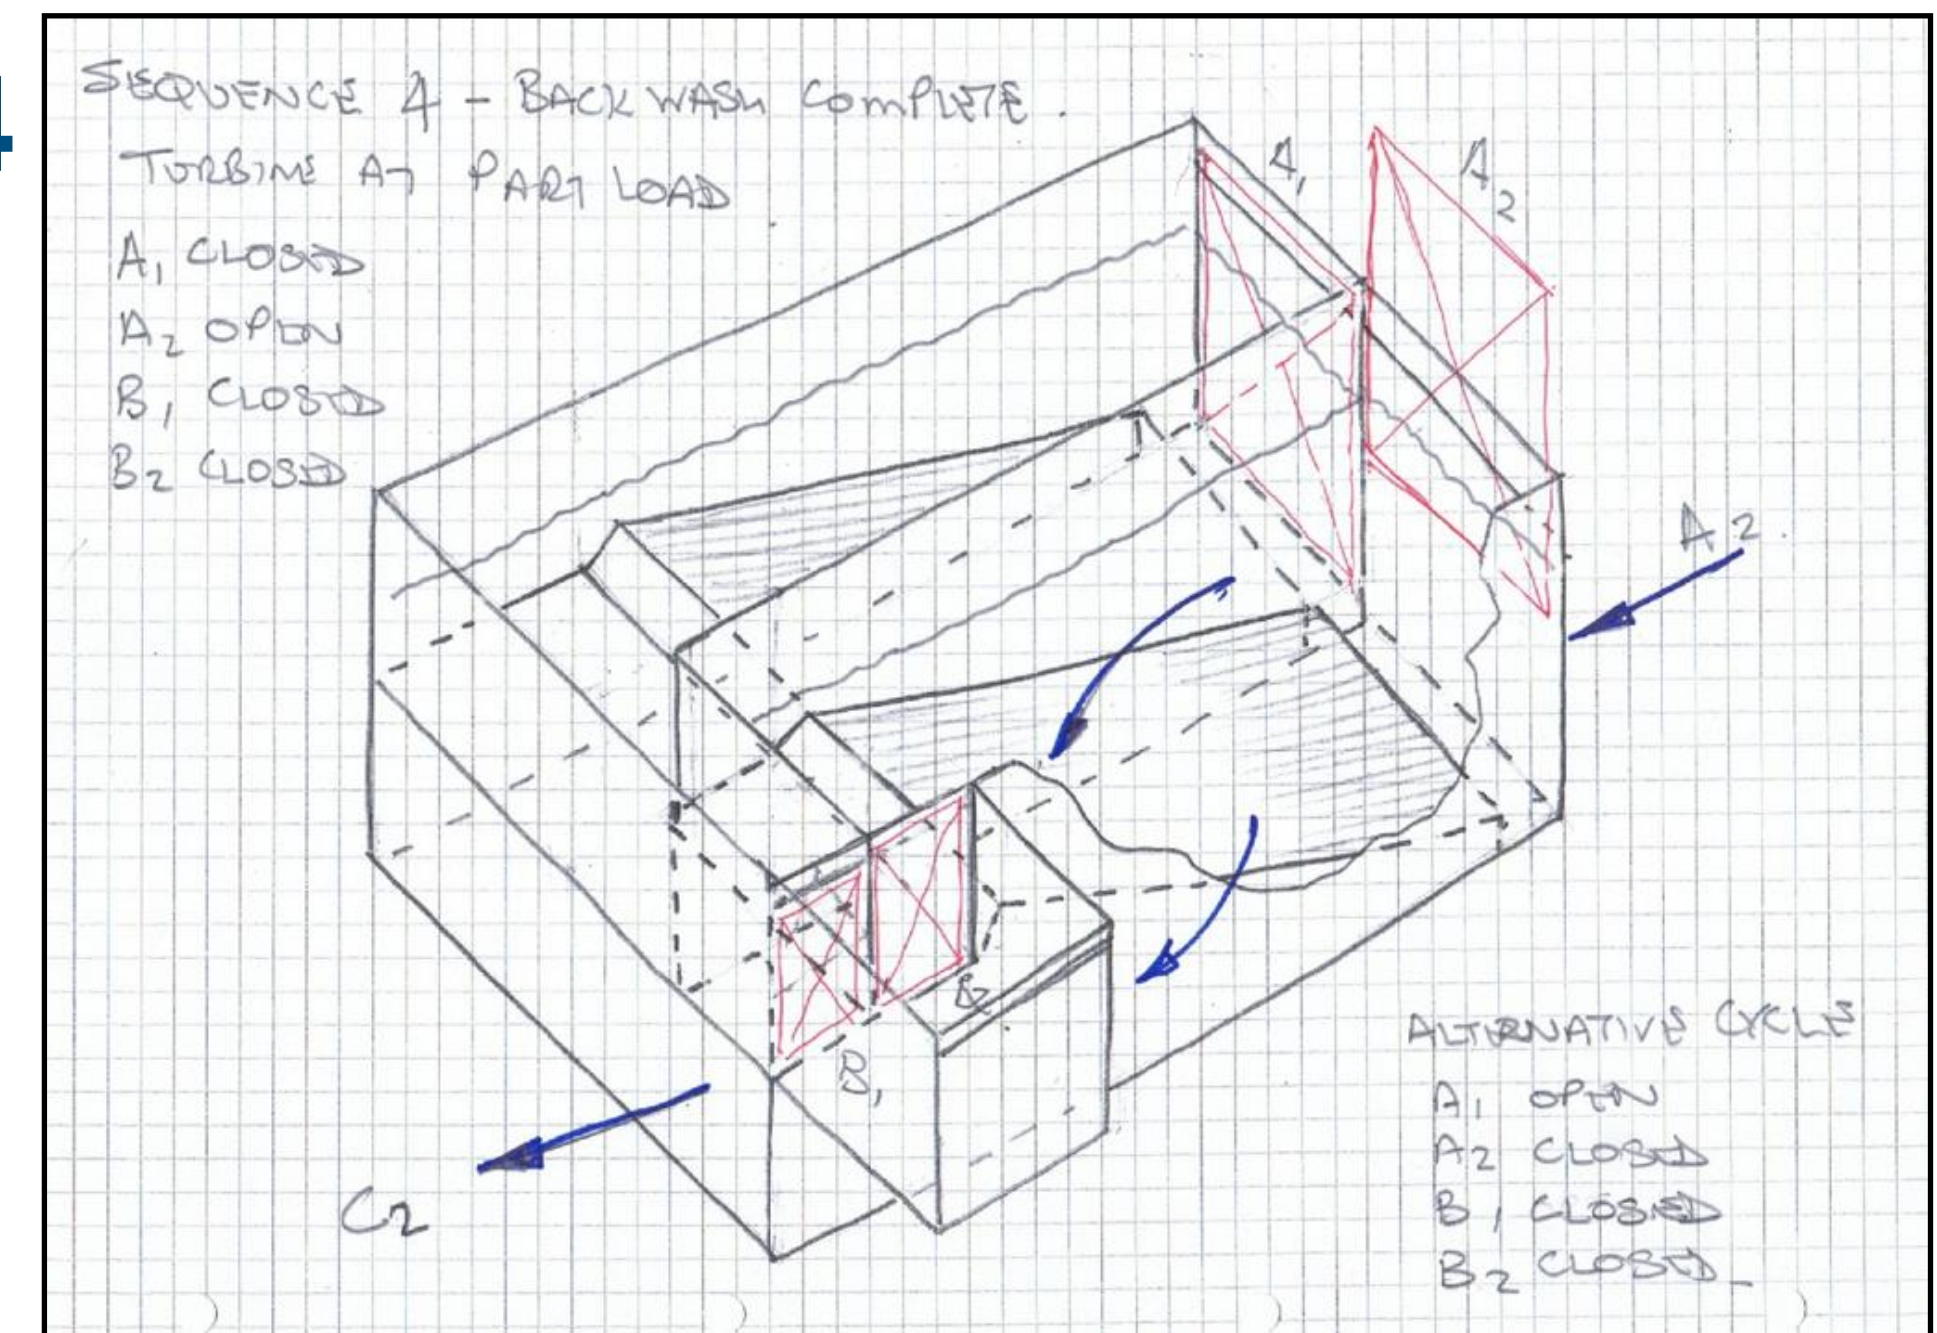 4
SEQUENCE 4 - BACKWASH COMPLETE.
TURBINE AT PART LOAD
A1 CLOSED
A2 OPEN
B1 CLOSED
B2 CLOSED
A1
A2
A2.
B2
B1
C2
ALTERNATIVE CYCLE
A1 OPEN
A2 CLOSED
B1 CLOSED
B2 CLOSED